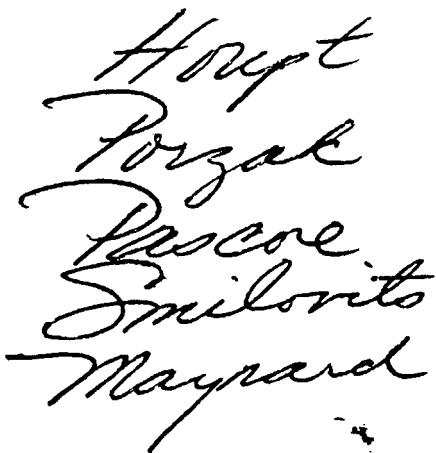 Houpt
Porzak
Pascoe
Smilovits
Maynard